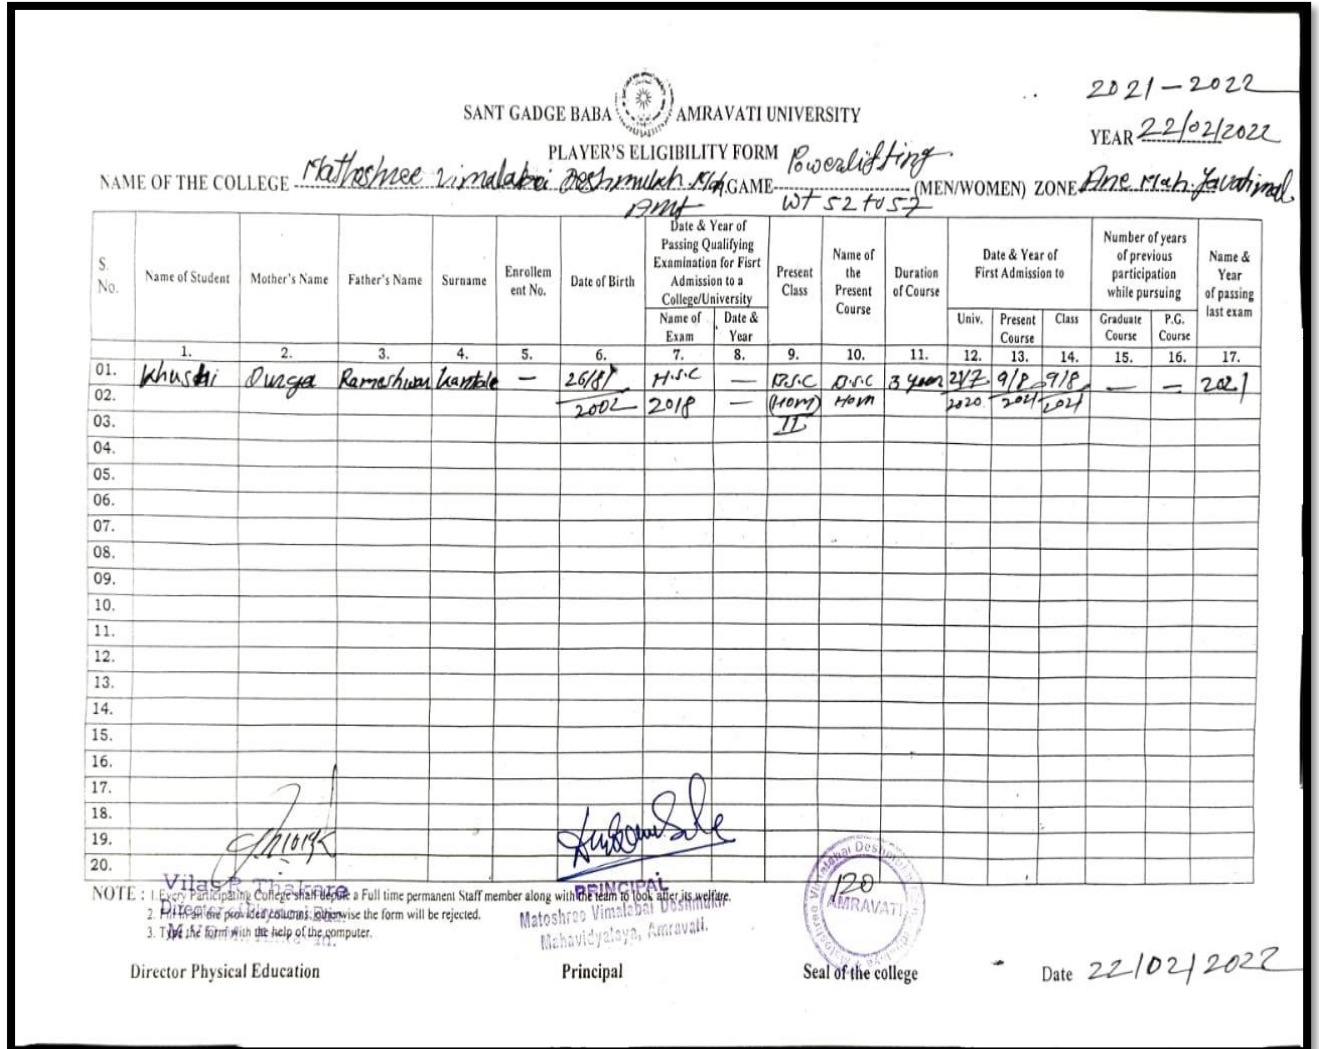 2021-2022
SANT GADGE BABA AMRAVATI UNIVERSITY
YEAR 22/02/2022
PLAYER'S ELIGIBILITY FORM
NAME OF THE COLLEGE Mathoshree Vimalabai Deshmukh Mah. Amt GAME Powerlifting (MEN/WOMEN) ZONE Ane Mah. Yavatmal
Wt 52 to 57
S. No.
Name of Student
Mother's Name
Father's Name
Surname
Enrollem ent No.
Date of Birth
Date & Year of Passing Qualifying Examination for Fisrt Admission to a College/University
Name of Exam
Date & Year
Present Class
Name of the Present Course
Duration of Course
Date & Year of First Admission to
Univ.
Present Course
Class
Number of years of previous participation while pursuing
Graduate Course
P.G. Course
Name & Year of passing last exam
1. 2. 3. 4. 5. 6. 7. 8. 9. 10. 11. 12. 13. 14. 15. 16. 17.
01. Khushi Durga Rameshwar Kamble – 26/8/ H.S.C — B.S.C B.S.C 3 year 21/7 9/8 9/8 — – 2021
02. 2002 2018 — (Hom) Hom 2020 2021 2021
03. II
04.
05.
06.
07.
08.
09.
10.
11.
12.
13.
14.
15.
16.
17.
18.
19.
20.
NOTE : 1. Every Participating College shall depute a Full time permanent Staff member along with the team to look after its welfare.
2. Fill in all the provided columns, otherwise the form will be rejected.
3. Type the form with the help of the computer.
Vilas P. Thakare
Director of Physical Edu.
PRINCIPAL
Matoshree Vimalabai Deshmukh
Mahavidyalaya, Amravati.
120
AMRAVATI
Director Physical Education
Principal
Seal of the college
Date 22/02/2022